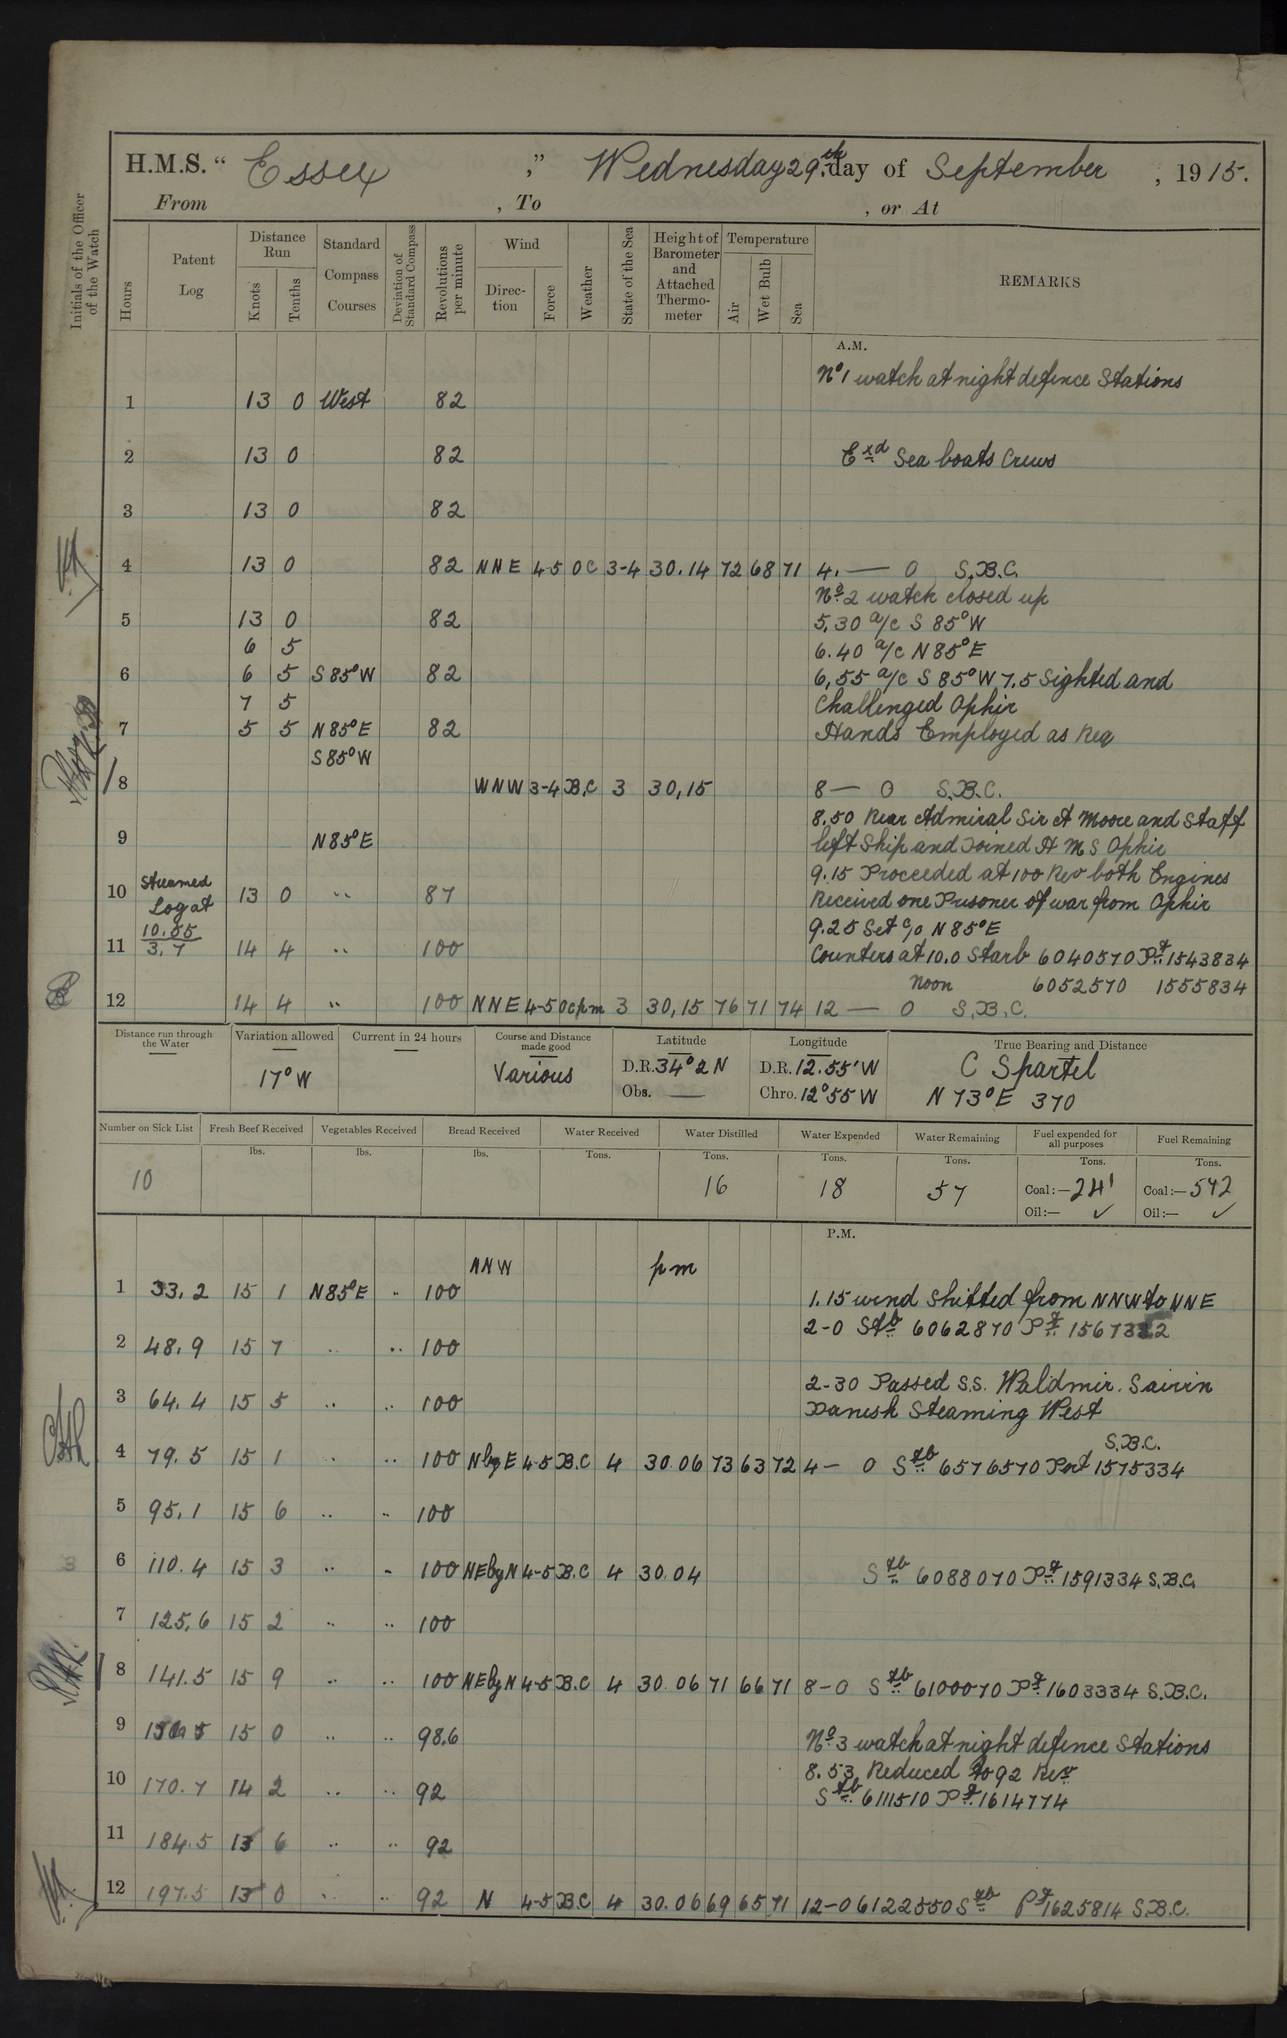 H.M.S. “ Essex ,” Wednesday 29.th day of September , 1915.
From , To , or At
Initials of the Officer of the Watch
Hours
Patent Log
Distance Run
Knots
Tenths
Standard Compass Courses
Deviation of Standard Compass
Revolutions per minute
Wind
Direc-tion
Force
Weather
State of the Sea
Height of Barometer and Attached Thermo-meter
Temperature
Air
Wet Bulb
Sea
REMARKS
A.M.
No 1 watch at night defence Stations
1 13 0 West 82
2 13 0 82 Exd Sea boats Crews
3 13 0 82
4 13 0 82 NNE 4-5 OC 3-4 30.14 72 68 71 4. — 0 S.B.C.
No 2 watch closed up
5 13 0 82 5.30 a/c S 85° W
6 5 6.40 a/c N 85° E
6 6 5 S 85° W 82 6,55 a/c S 85° W 7.5 Sighted and
7 5 Challenged Ophir
7 5 5 N 85° E 82 Hands Employed as Req
S 85° W
8 WNW 3-4 B.C 3 30,15 8 — 0 S.B.C.
8.50 Rear Admiral Sir A Moore and Staff
9 N 85° E left Ship and Joined H M S Ophir
9.15 Proceeded at 100 Rev both Engines
10 Steamed Log at 13 0 " 87 Received one Prisoner of war from Ophir
10.55 9.25 Set c/o N 85° E
11 3.7 14 4 " 100 Counters at 10.0 Starb 6040570 Pt 1543834
Noon 6052570 1555834
12 14 4 " 100 NNE 4-5 ocpm 3 30,15 76 71 74 12 — 0 S.B.C.
Distance run through the Water
Variation allowed
17° W
Current in 24 hours
Course and Distance made good
Various
Latitude
D.R. 34° 2 N
Obs. —
Longitude
D.R. 12.55' W
Chro. 12° 55 W
True Bearing and Distance
C Spartel
N 73° E 370
Number on Sick List
10
Fresh Beef Received
lbs.
Vegetables Received
lbs.
Bread Received
lbs.
Water Received
Tons.
Water Distilled
Tons.
16
Water Expended
Tons.
18
Water Remaining
Tons.
57
Fuel expended for all purposes
Tons.
Coal:—
Oil:— ✓
Fuel Remaining
Tons.
Coal:— 542
Oil:— ✓
P.M.
NNW pm
1 33.2 15 1 N 85° E " 100 1.15 wind Shifted from NNW to NNE
2-0 Stb 6062870 Pt
2 48.9 15 7 " " 100
2-30 Passed S.S. Waldmir. Sairin
3 64.4 15 5 " " 100 Danish Steaming West
S.B.C.
4 79.5 15 1 " " 100 N by E 4-5 B.C 4 30.06 73 63 72 4 — 0 Stb 6576570 Port 1575334
5 95.1 15 6 " " 100
6 110.4 15 3 " " 100 NE by N 4-5 B.C 4 30.04 Stb 6088070 Pt 1591334 S.B.C.
7 125.6 15 2 " " 100
8 141.5 15 9 " " 100 NE by N 4-5 B.C 4 30.06 71 66 71 8-0 Stb 6100070 Pt 1603334 S.B.C.
9 15 0 " " 98.6 No 3 watch at night defence Stations
8.53 Reduced to 92 Rev
10 170.7 14 2 " " 92 Stb 6111510 Pt 1614774
11 184.5 13 6 " " 92
12 197.5 13 0 " " 92 N 4-5 B.C 4 30.06 69 65 71 12-0 6122550 Stb Pt 1625814 S.B.C.